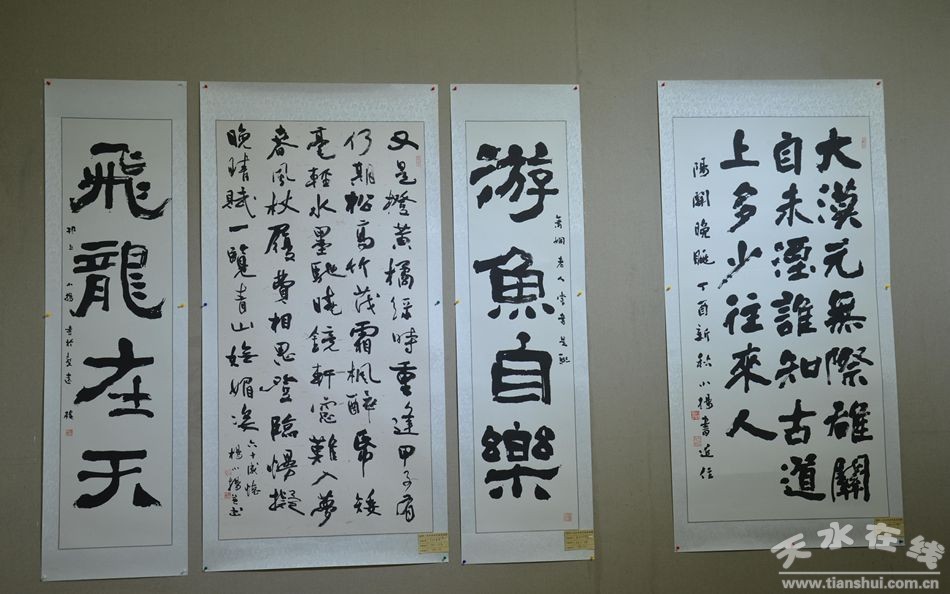 飛龍在天
又是橙黃橘綠時重逢甲子有
仍期松高竹茂霜楓醉帋矮
毫輕水墨馳曉鏡軒窓難入夢
春風杖履費相思登臨慢擬
晚晴賦一覽青山嫵媚姿
六十感懷
游魚自樂
大漠元無際雄關
自未湮誰知古道
上多少往來人
陽關晚眺 丁酉新秋小楊書近作
天水在线
www.tianshui.com.cn